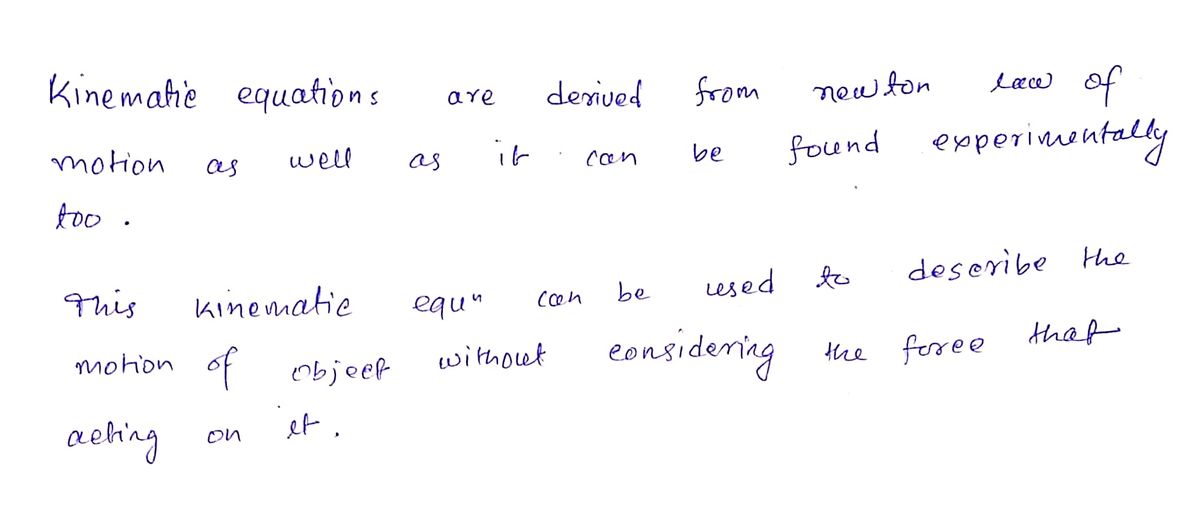 Kinematic equations are derived from newton law of
motion as well as it can be found experimentally
too.
This kinematic equn can be used to describe the
motion of object without considering the force that
acting on it.